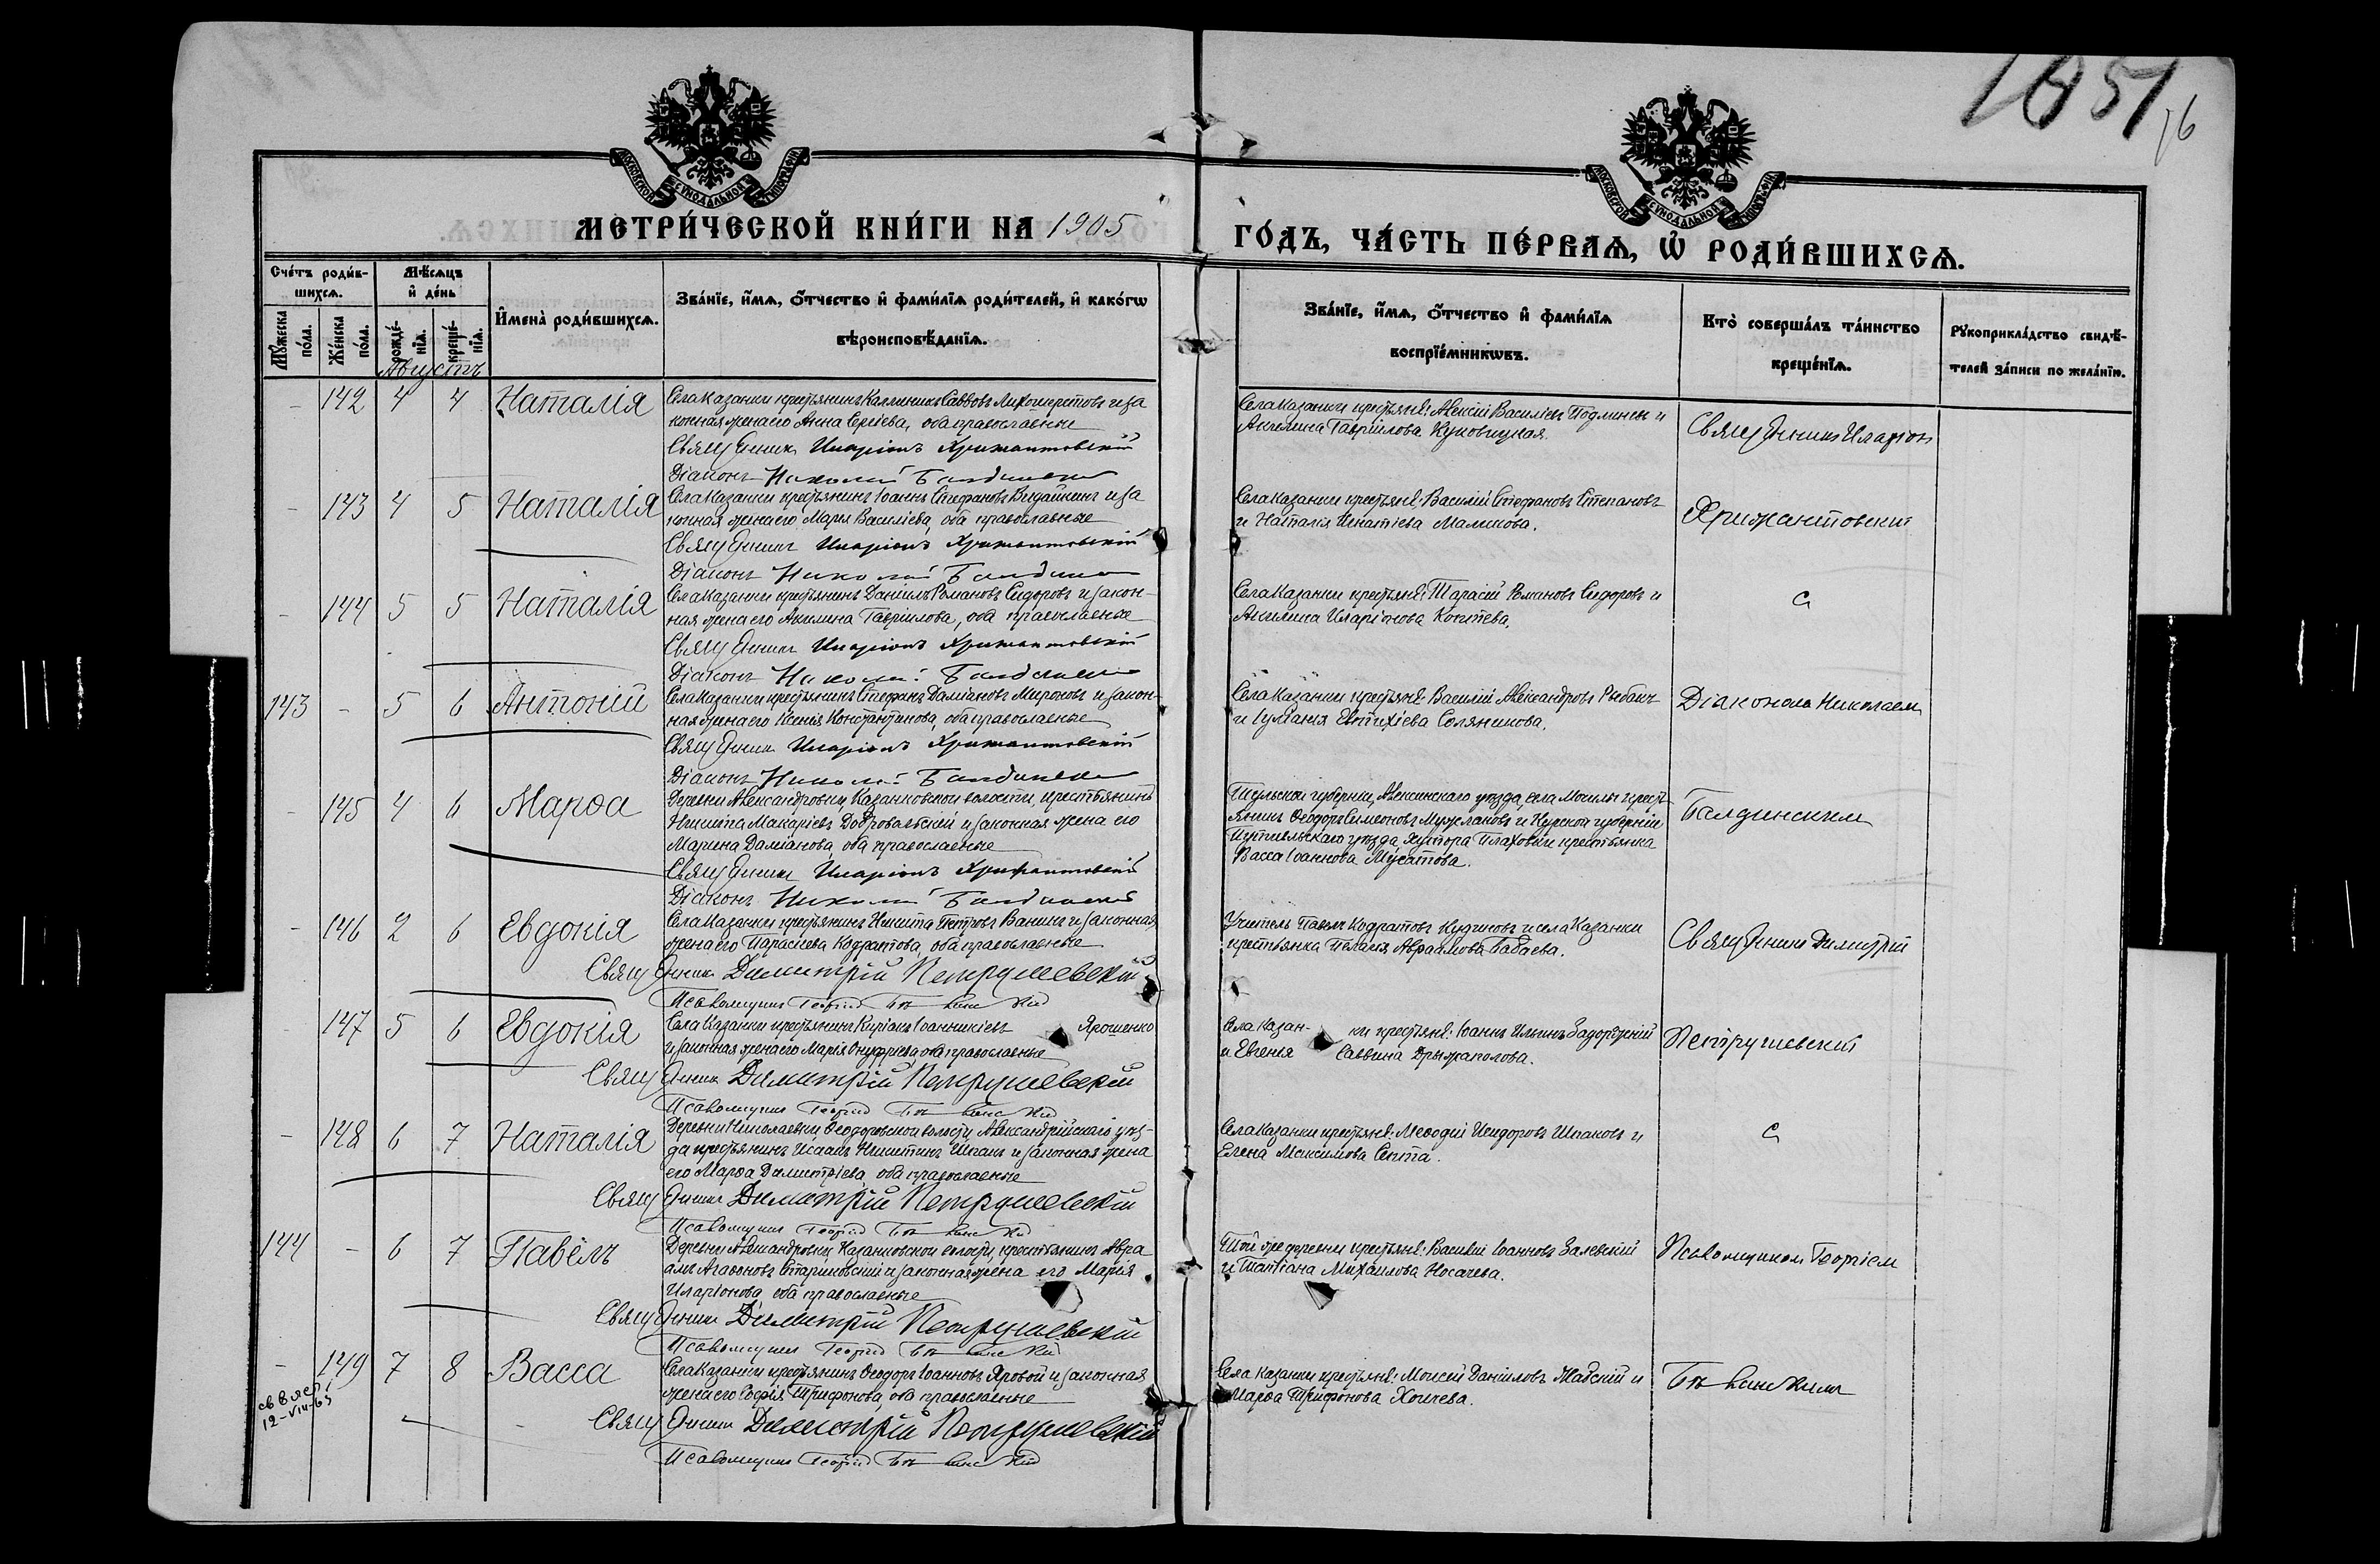 1051
76
МОСКОВСКОЙ СѴНОДАЛЬНОЙ ТИПОГРАФІИ
МОСКОВСКОЙ СѴНОДАЛЬНОЙ ТИПОГРАФІИ
МЕТРИ́ЧЕСКОЙ КНИ́ГИ НА 1905
ГО́ДЪ, ЧА́СТЬ ПЕ́РВАѦ, Ѡ҆ РОДИ́ВШИХСѦ.
Сче́тъ роди́в-
шихсѧ.
Мꙋ́жеска по́ла.
Же́нска по́ла.
Мѣ́сѧцъ
и҆ де́нь
рожде́-
нїѧ.
креще́-
нїѧ.
И҆мена̀ роди́вшихсѧ.
Зва́нїе, и҆́мѧ, ѻ҆́тчество и҆ фами́лїѧ роди́телей, и҆ како́гѡ
вѣроисповѣ́данїѧ.
Зва́нїе, и҆́мѧ, ѻ҆́тчество и҆ фами́лїѧ
воспрїе́мникѡвъ.
Кто̀ соверша́лъ та́инство
креще́нїѧ.
Рꙋкоприкла́дство свидѣ́-
телей за́писи по жела́нїю.
Августъ
- 142 4 4 Наталія
Села Казанки крестьянинъ Каллиникъ Саввовъ и за
конная жена его Анна Сергіева, оба православные
Священникъ Иларіонъ Хрисантовскій
Діаконъ Николай Балдинскій
Села Казанки крестьяне: Алексій Василіевъ и
Акилина Гавріилова
Священникъ Иларіон
- 143 4 5 Наталія
Села Казанки крестьянинъ Іоаннъ Стефановъ и за
конная жена его Марія Василіева, оба православные
Священникъ Иларіонъ Хрисантовскій
Діаконъ Николай Балдинскій
Села Казанки крестьяне: Василій Стефановъ Степановъ
и Наталія Игнатіева Маликова.
Хрисантовскій
- 144 5 5 Наталія
Села Казанки крестьянинъ Даніилъ Романовъ Сидоровъ и закон-
ная жена его Акилина Гавріилова, оба православные
Священникъ Иларіонъ Хрисантовскій
Діаконъ Николай Балдинскій
Села Казанки крестьяне: Тарасій Романовъ Сидоровъ и
Акилина Иларіонова
143 - 5 6 Антоній
Села Казанки крестьянинъ Стефанъ Даміановъ Мироновъ и закон-
ная жена его Ксенія Константинова, оба православные
Священникъ Иларіонъ Хрисантовскій
Діаконъ Николай Балдинскій
Села Казанки крестьяне: Василій Александровъ Рыбакъ
и Іуліанія Евтихіева Соляникова.
Діакономъ Николаемъ
- 145 4 6 Марѳа
Деревни Александровки, Казанковской волости, крестьянинъ
Никита Макаріевъ Добровольскій и законная жена его
Марина Даміанова, оба православные
Священникъ Иларіонъ Хрисантовскій
Діаконъ Николай Балдинскій
Тульской губерніи, Алексинскаго уѣзда, села Могилы кресть-
янинъ Ѳеодоръ Симеоновъ и Курской губерніи
Путивльскаго уѣзда, хутора крестьянка
Васса Іоаннова Мусатова.
Балдинскимъ
- 146 2 6 Евдокія
Села Казанки крестьянинъ Никита Петровъ Ванинъ и законная
жена его Параскева Кодратова, оба православные
Священникъ Димитрій Петрушевскій
Псаломщикъ Георгій
Учитель Павелъ Кодратовъ и села Казанки
крестьянка Пелагія Авраамова Бабаева.
Священник Димитрій
- 147 5 6 Евдокія
Села Казанки крестьянинъ Киріакъ Іоанникіевъ Ярошенко
и законная жена его Марія Онуфріева, оба православные
Священникъ Димитрій Петрушевскій
Псаломщикъ Георгій
Села Казан- ки крестьяне: Іоаннъ Ильинъ Задорожній
и Евгенія Саввина Дрыжаполова.
Петрушевскій
- 148 6 7 Наталія
Деревни Николаевки Ѳеодоровской волости, Александрійскаго уѣз-
да крестьянинъ Исаакъ Никитинъ Шпакъ и законная жена
его Марѳа Димитріева, оба православные
Священникъ Димитрій Петрушевскій
Псаломщикъ Георгій
Села Казанки крестьяне: Меѳодій Исидоровъ Шпаковъ и
Елена Максимова Септа.
144 - 6 7 Павелъ
Деревни Александровки Казанковской волости, крестьянинъ Авра
амъ Агаѳоновъ Стариковскій и законная жена его Марія
Иларіонова, оба православные
Священникъ Димитрій Петрушевскій
Псаломщикъ Георгій
Той же деревни крестьяне: Василій Іоанновъ Залевскій
и Татіана Михаилова Носачева.
Псаломщикомъ Георгіем
- 149 7 8 Васса
Села Казанки крестьянинъ Ѳеодоръ Іоанновъ Яровой и законная
жена его Софія Трифонова, оба православные
Священникъ Димитрій Петрушевскій
Псаломщикъ Георгій
Села Казанки крестьяне: Моисей Даніиловъ и
Марѳа Трифонова
12-VIII-65